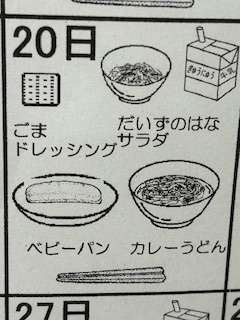 20日
ぎゅうにゅう
ごま
ドレッシング
だいずのはな
サラダ
ベビーパン
カレーうどん
27日
2